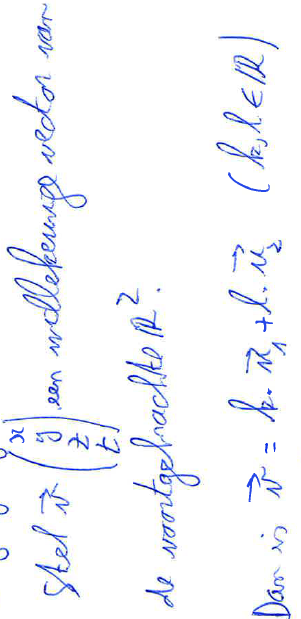 Stel $\vec{v} \begin{pmatrix} x \\ y \\ z \\ t \end{pmatrix}$ een willekeurige vector van
de voortgebrachte $\mathbb{R}^2$.
Dan is $\vec{v} = k \cdot \vec{u}_1 + l \cdot \vec{u}_2$ $(k, l \in \mathbb{R})$